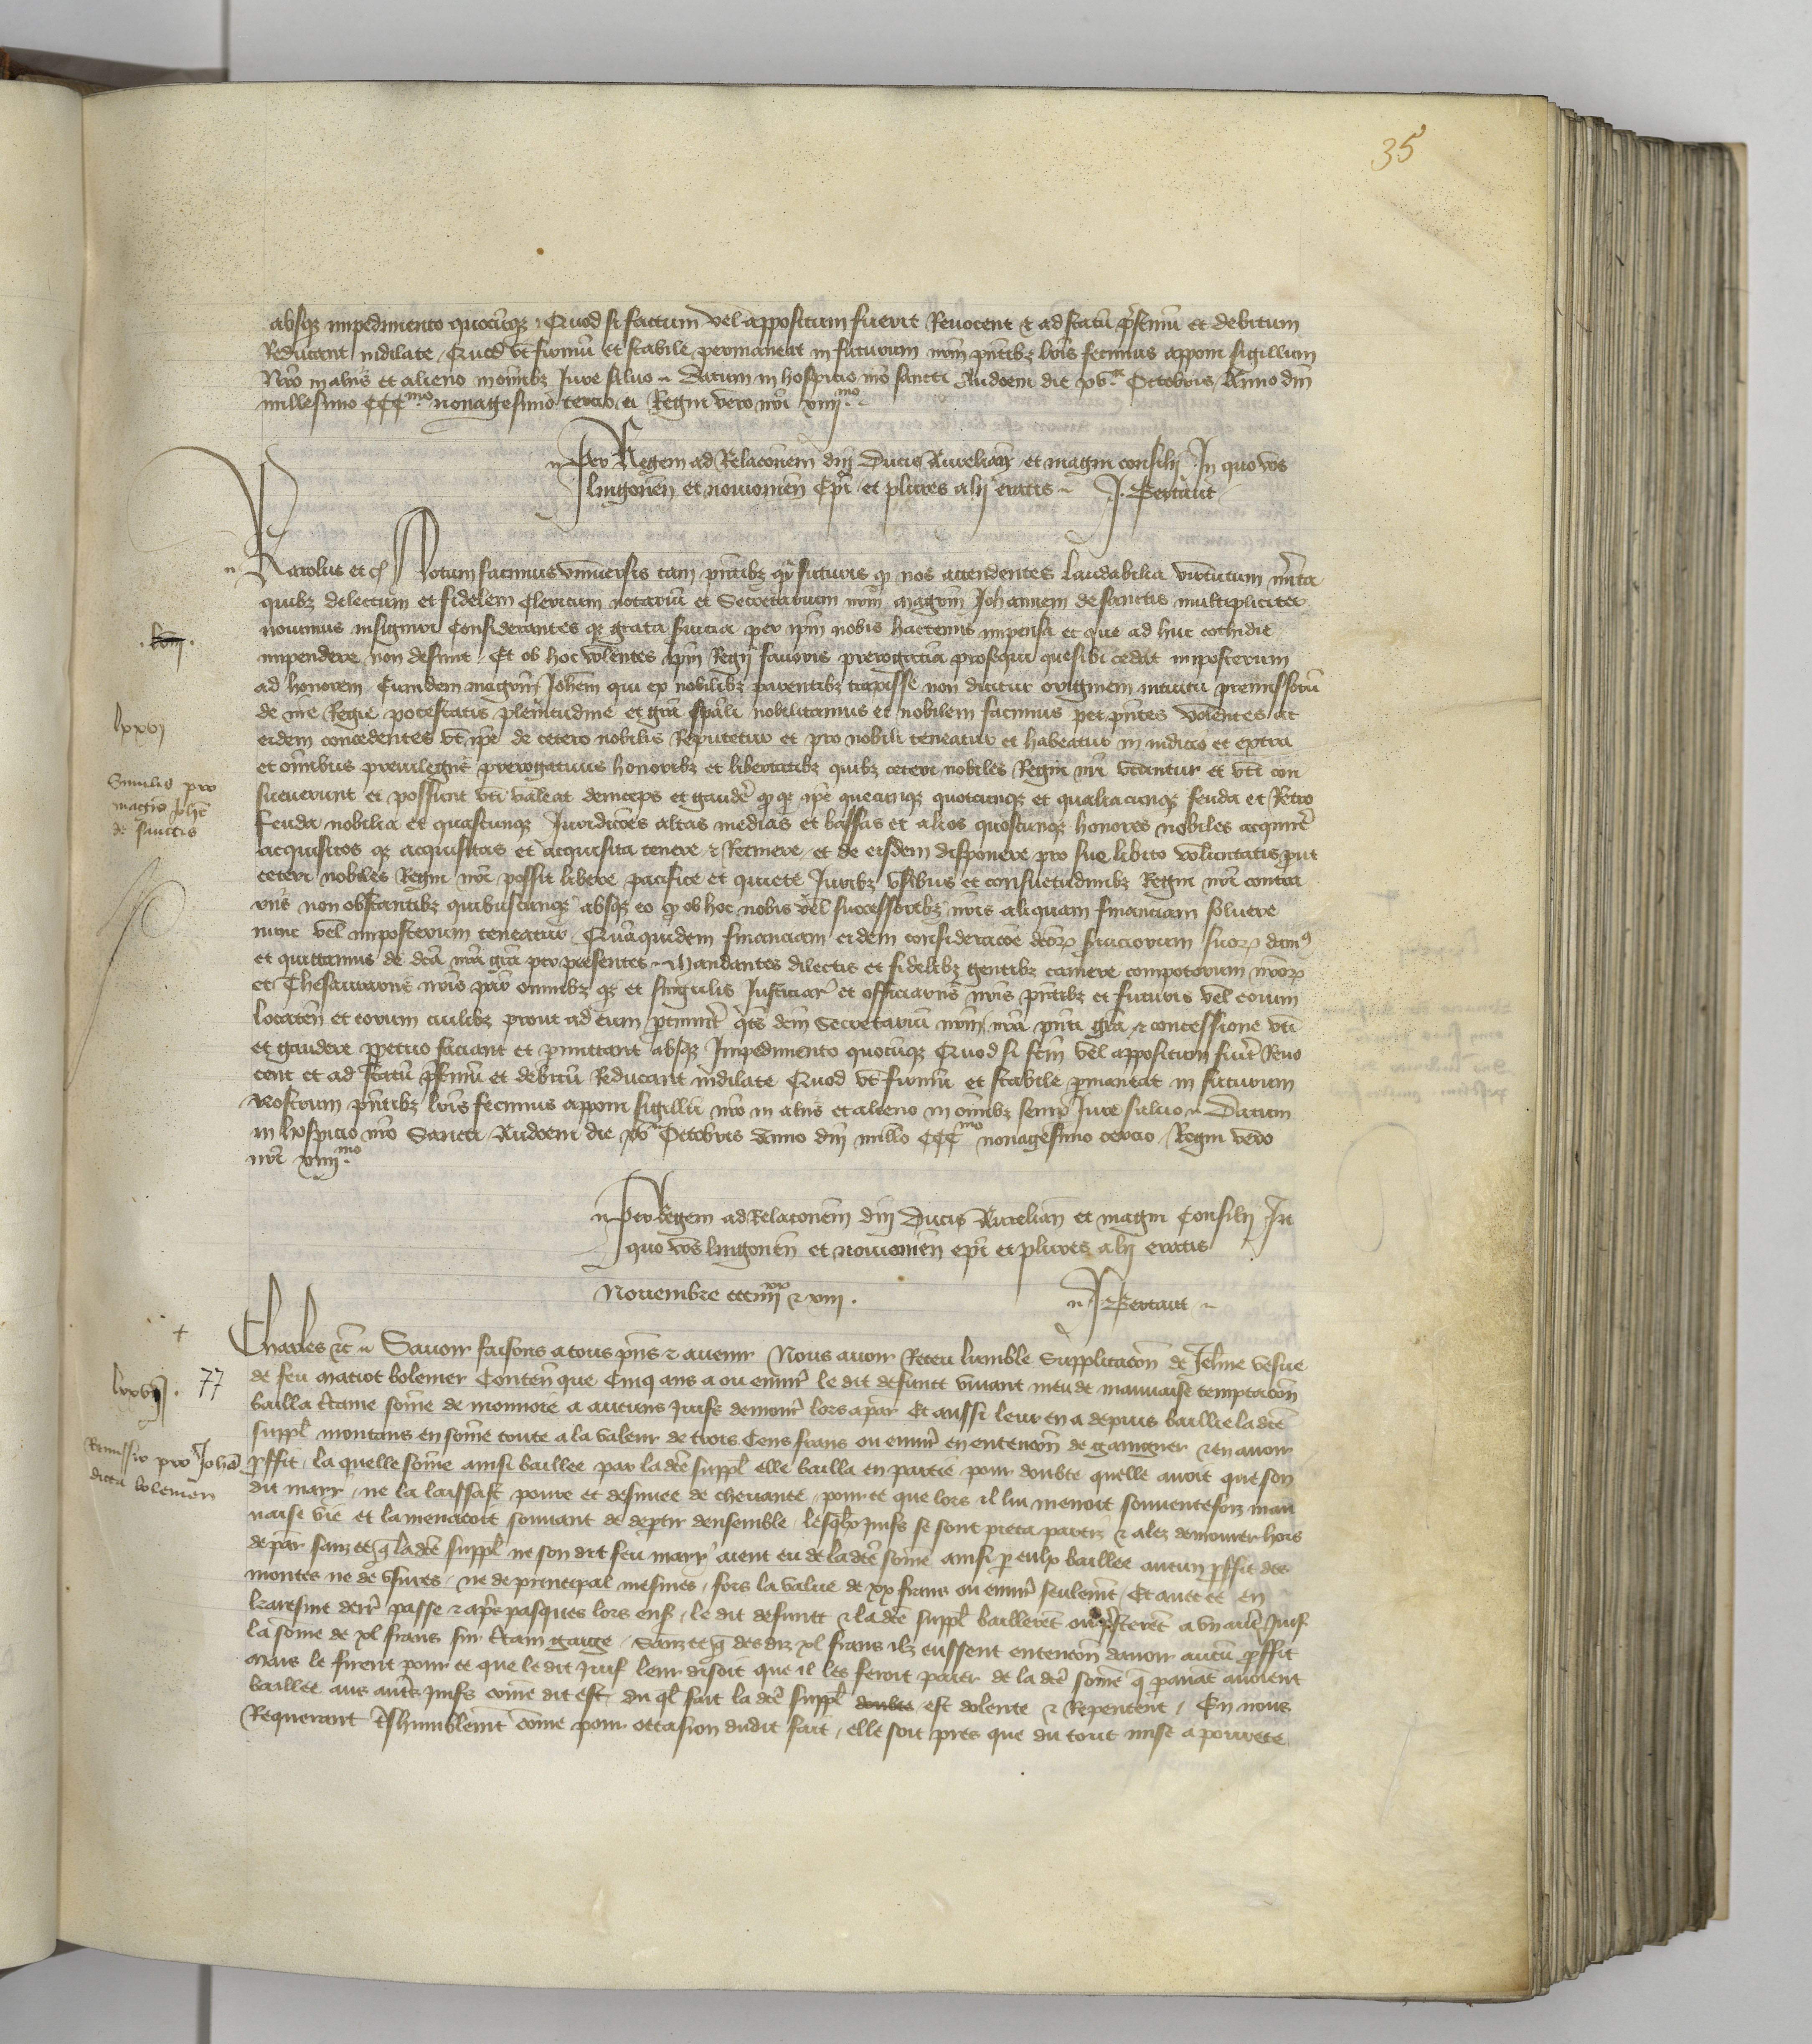 35
absqz impedimento quocumqz. Quod si factum vel appositum fuerit Revocent et ad statu pristinu et debitum
Reducant indilate. Quod vt firmu et stabile permaneat in futurum nrm pntibz lris fecimus apponi sigillum
Nro in aliis et alieno in omibz Jure salvo. Datum in hospicio nro sancti Audoeni die xva Octobris Anno dni
millesimo CCCmo nonagesimo tercio et Regni vero nri xiiiimo.
Per Regem ad Relaconem dni Ducis Aurelian et magni consilij In quo vos
lingonen et noviomen Epi et plures alij eratis J. Bertaut
Karolus etc Notum facimus vniversis tam pntibz qz futuris qz nos attendentes laudabilia virtutum mita
quibz dilectum et fidelem Clericum notariu et Secretarium nrm magrm Johannem de sanctis multipliciter
novimus insigniri Considerantes qz grata svicia per ipm nobis hactenus impensa et que ad huc cothidie
impendere non desinit. Et ob hoc volentes ipm Regij favoris prerogativa prosequi que sibi cedat imposterum
ad honorem. Eumdem magrm Johem qui ex nobilibz parentibz traxisse non dicitur originem intuitu premissoru
de nre Regie potestatis plenitudine et gra spali nobilitamus et nobilem facimus per pntes volentes ac
eidem concedentes vt ipe de cetero nobilis Reputetur et pro nobili teneatur et habeatur in iudicio et extra
et omibus previlegiis prerogativis honoribz et libertatibz quibz ceteri nobiles Regni nri vtuntur et vti con
sueverunt et possunt vti valeat deinceps et gaude qz qz ipe quecumqz quotcunqz et qualiacunqz feuda et Retro
feuda nobilia et quascunqz Juridicoes altas medias et bassas et alios quoscunqz honores nobiles acquire
acquisitos qz acquisitas et acquisita tenere et Retinere et de eisdem disponere pro sue libito voluntatis prut
ceteri nobiles Regni nri possit libere pacifice et quiete Juribz vsibus et consuetudinibz Regni nri contra
riis non obstantibz quibuscunqz absqz eo qz ob hoc nobis vel successoribz nris aliquam financiam solvere
nunc vel imposterum teneatur. Quamquidem financiam eidem consideracoe dcorz serviciorum suorz dam9
et quittamus de dca nra gra per presentes. Mandantes dilectis et fidelibz gentibz camere compotorum nrorz
et Thesaurariis nris par omnibz qz et singulis Justiciar et officiariis nris pntibz et futuris vel eorum
locaten et eorum cuilibz prout ad eum ptinuit qts dcm Secretariu nrm nra pnti gra et concessione vti
et gaudere ppetuo faciant et pmittant absqz Impedimento quocumqz Quod si fcm vel appositum fuit Revo
cent et ad statu pstinu et debitu Reducant indilate Quod vt firmu et stabile pmaneat in futurum
Nostrum pntibz lris fecimus apponi sigillu nro in aliis et alieno in omibz semp Jure salvo. Datum
in hospicio nro Sancti Audoeni die xva Octobris Anno dni millo CCCmo nonagesimo tercio. Regni vero
nri xiiiimo.
Per Regem ad Relaconem dni Ducis Aurelian et magni Consilij In
quo vos lingonen et noviomen epi et plures alij eratis
Novembre ccciiiixx et xiii.
J Bertaut
Charles etc Savoir faisons a tous pns et avenir Nous avoir Receu lumble Supplicacon de Jehne vesue
de feu Matiot bolemer Conten que Cinq ans a ou envir le dit defunct vivant meu de mauvaise temptacon
bailla ctaine some de monnoie a aucuns Juifs demour lors a par Et aussi leur en a depuis baillie la dce
suppl montans en some toute a la valeur de trois Cens frans ou envir en entencon de gaingner et en avoir
pffit. la quelle some ainsi baillee par la dce suppl elle bailla en partie pour doubte quelle avoit que son
dit mary ne la laissast povre et desnuee de chevance. pour ce que lors il lui menoit souventesfoiz mau
vaise vie et la menacoit souvant de deptir densemble. lesqlx Juifs se sont pieca partiz et alez demourer hors
de par sanz ce q la dce suppl ne son dit feu mary aient eu de la dce some ainsi p eulx baillee aucun pffit des
montes ne de vsures. ne de principal mesmes. fors la value de xx frans ou envir seulemt. Et avec ce en
karesme derr passe et apres pasques lors ens. le dit defunct et la dce suppl bailleret ou psterent a vn autre Juif
la some de xl frans sur ctain gaige. Sanz ce q des diz xl frans ilz eussent entencon davoir aucu pffit
Mais le firent pour ce que le dit Juif leur disoit que il les feroit paier de la dce some q pavat avoient
baillee aus autres Juifs come dit est. du ql fait la dce suppl est dolente et Repentent. En nous
Requerant treshumblemt come pour occasion dudit fait. elle soit pres que du tout mise a povrete
lxxvj
Similis pro
magro Johe
de sanctis
lxxvij. 77
Remissio pro Joha
dicta bolemer